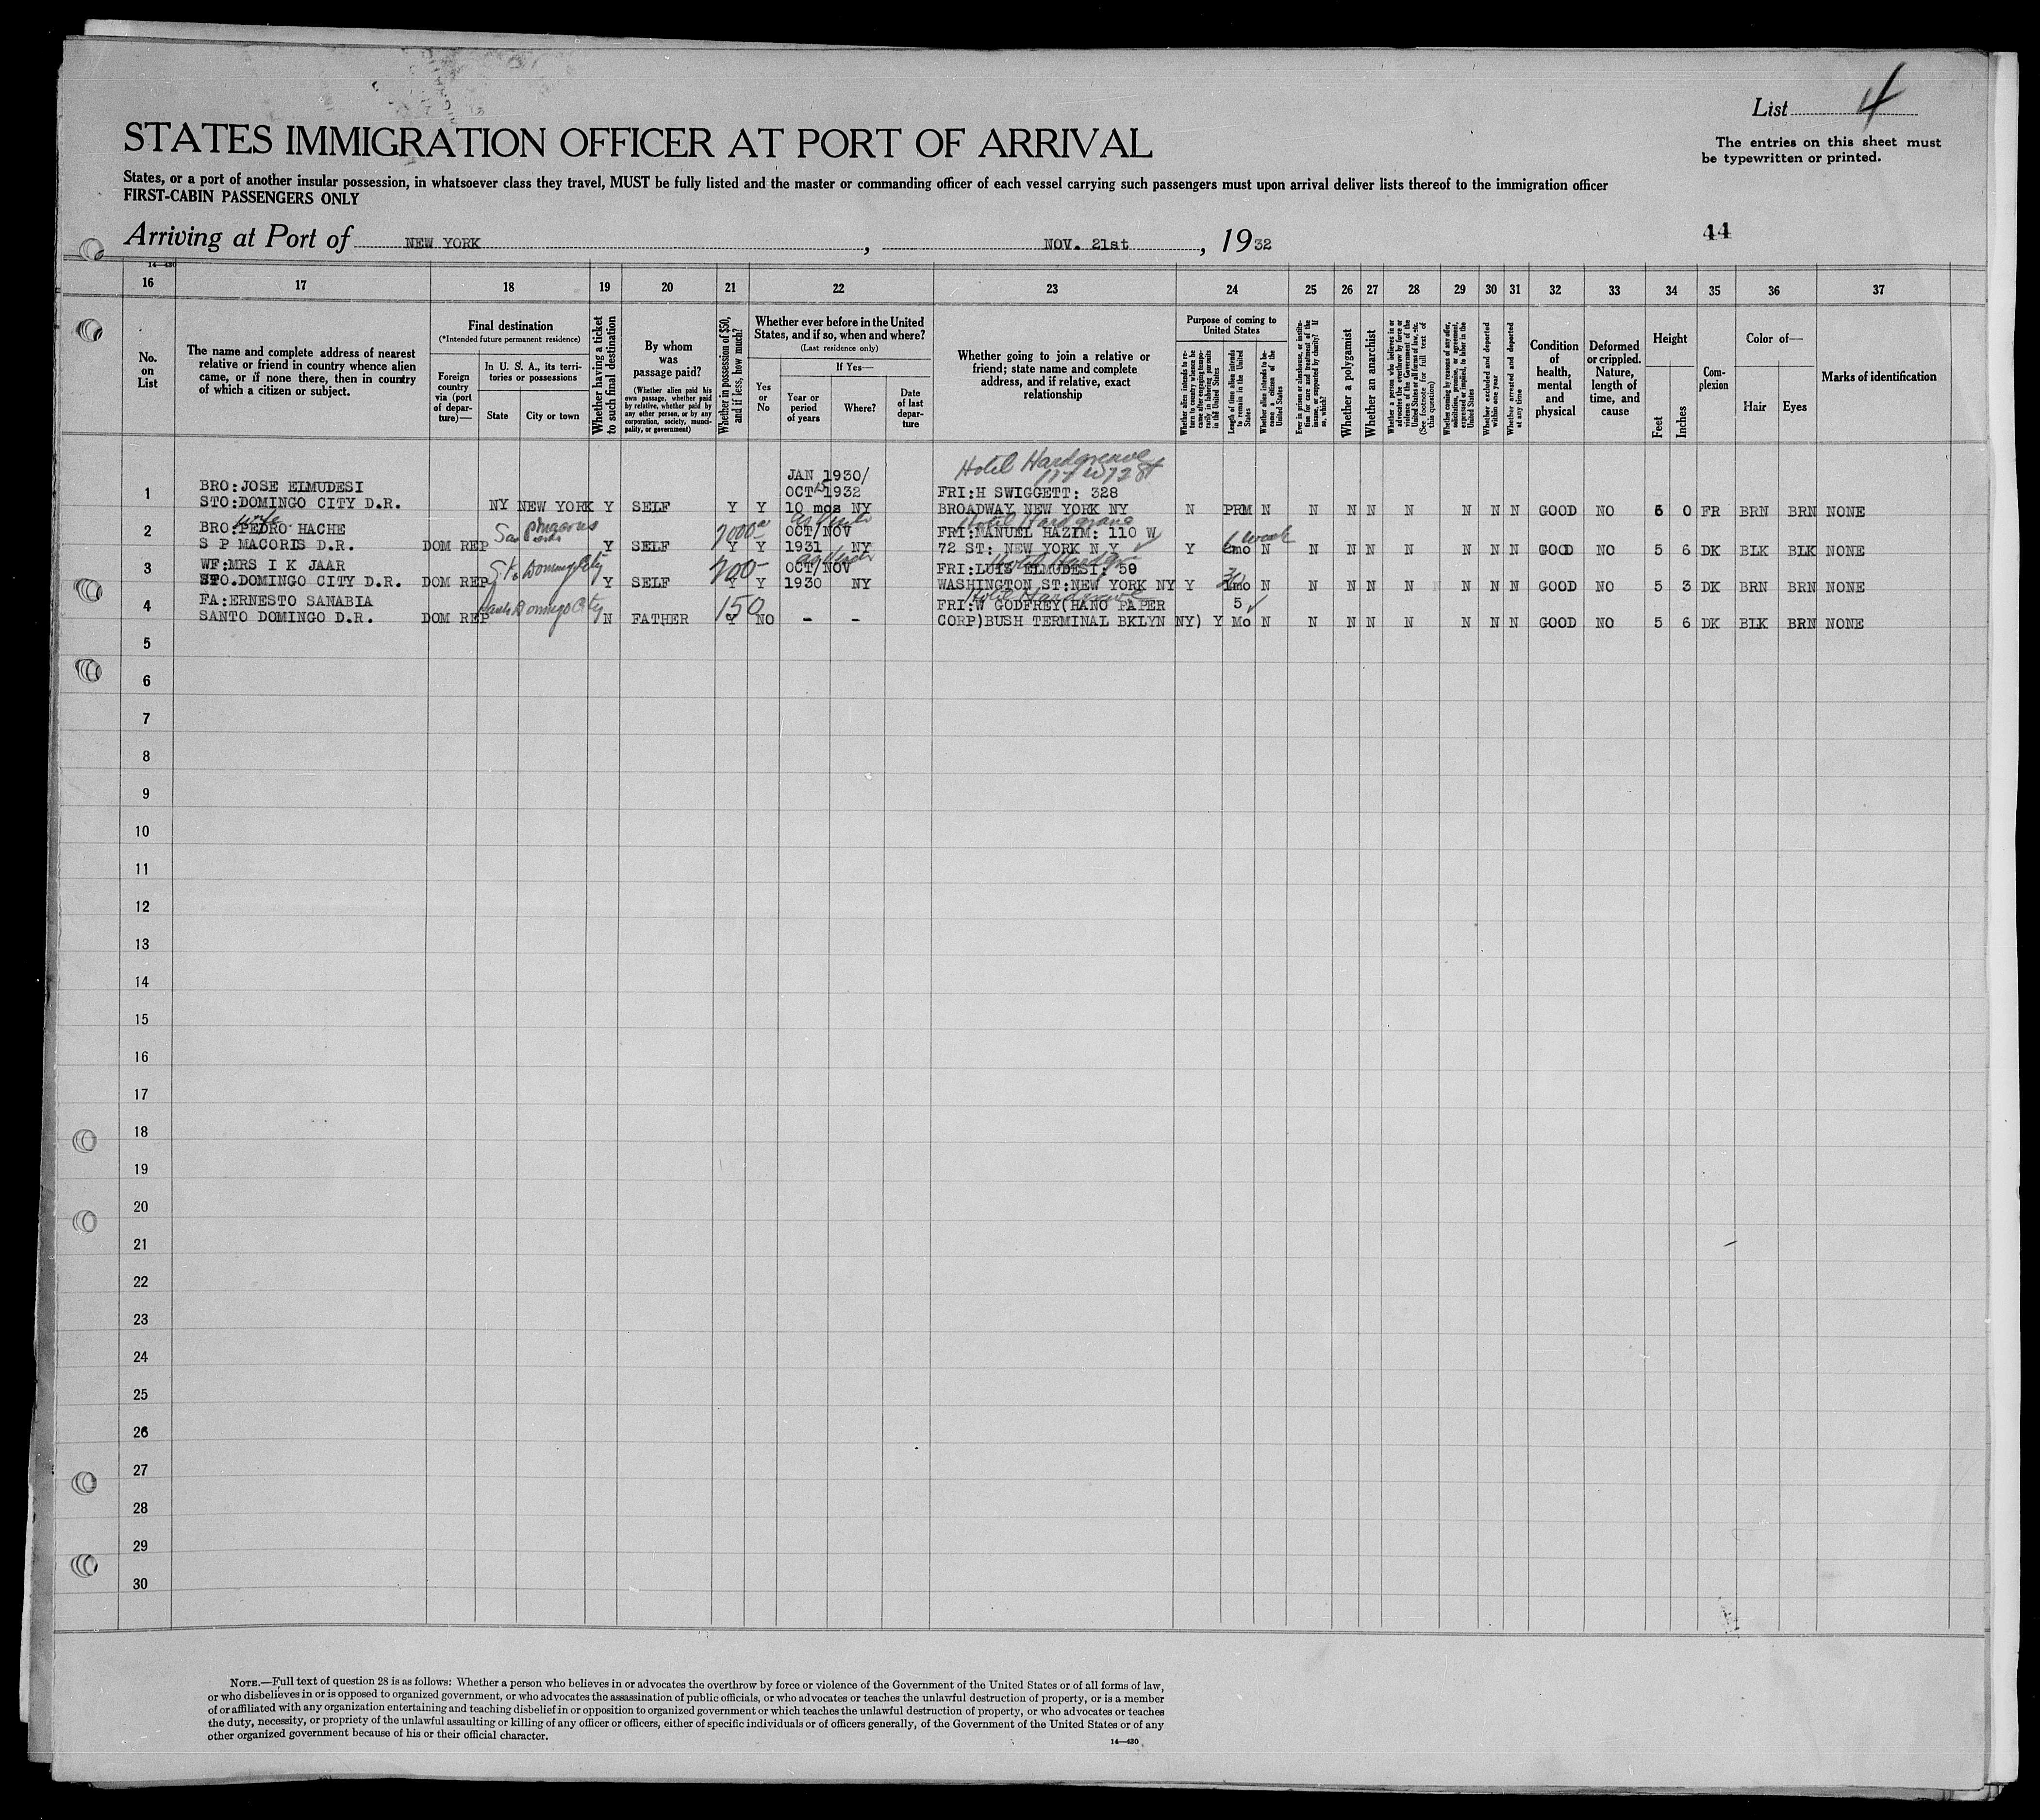 List 4
The entries on this sheet must
be typewritten or printed.
STATES IMMIGRATION OFFICER AT PORT OF ARRIVAL
States, or a port of another insular possession, in whatsoever class they travel, MUST be fully listed and the master or commanding officer of each vessel carrying such passengers must upon arrival deliver lists thereof to the immigration officer
FIRST-CABIN PASSENGERS ONLY
Arriving at Port of NEW YORK, NOV. 21st, 1932
44
14—430
16 17 18 19 20 21 22 23 24 25 26 27 28 29 30 31 32 33 34 35 36 37
No. on List
The name and complete address of nearest
relative or friend in country whence alien
came, or if none there, then in country
of which a citizen or subject.
Final destination
(*Intended future permanent residence)
Foreign
country
via (port
of depar-
ture)—
In U. S. A., its terri-
tories or possessions
State
City or town
Whether having a ticket
to such final destination
By whom
was
passage paid?
(Whether alien paid his
own passage, whether paid
by relative, whether paid by
any other person, or by any
corporation, society, munici-
pality, or government)
Whether in possession of $50,
and if less, how much?
Whether ever before in the United
States, and if so, when and where?
(Last residence only)
Yes
or
No
If Yes—
Year or
period
of years
Where?
Date
of last
depar-
ture
Whether going to join a relative or
friend; state name and complete
address, and if relative, exact
relationship
Purpose of coming to
United States
Whether alien intends to re-
turn to country whence he
came after engaging tempo-
rarily in laboring pursuits
in the United States
Length of time alien intends
to remain in the United
States
Whether alien intends to be-
come a citizen of the
United States
Ever in prison or almshouse, or institu-
tion for care and treatment of the
insane, or supported by charity? If
so, which?
Whether a polygamist
Whether an anarchist
Whether a person who believes in or
advocates the overthrow by force or
violence of the Government of the
United States or all forms of law, etc.
(See footnote for full text of
this question)
Whether coming by reason of any offer,
solicitation, promise, or agreement,
expressed or implied, to labor in the
United States
Whether excluded and deported
within one year
Whether arrested and deported
at any time
Condition
of
health,
mental
and
physical
Deformed
or crippled.
Nature,
length of
time, and
cause
Height
Feet
Inches
Com-
plexion
Color of—
Hair
Eyes
Marks of identification
Hotel Hardgreave
117 W 72 St
JAN 1930/
BRO:JOSE ELMUDESI OCT 1932 FRI:H SWIGGETT: 328
1 STO:DOMINGO CITY D.R. NY NEW YORK Y SELF Y Y 10 mos NY BROADWAY NEW YORK NY N PRM N N N N N N N N GOOD NO 5 0 FR BRN BRN NONE
wife Hotel Hardgrave
2 BRO:PEDRO HACHE San Pedro Macoris 7000 OCT/NOV FRI:MANUEL HAZIM: 110 W 1 week
S P MACORIS D.R. DOM REP Y SELF Y Y 1931 NY 72 ST: NEW YORK N Y Y mo N N N N N N N N GOOD NO 5 6 DK BLK BLK NONE
3 WF:MRS I K JAAR Sto Domingo City 200- OCT/NOV FRI:LUIS ELMUDESI: 59
STO.DOMINGO CITY D.R. DOM REP Y SELF Y Y 1930 NY WASHINGTON ST:NEW YORK NY Y 1mo N N N N N N N N GOOD NO 5 3 DK BRN BRN NONE
Hotel Hardgreave
4 FA:ERNESTO SANABIA Santo Domingo City 150 FRI:W GODFREY(HANO PAPER 5
SANTO DOMINGO D.R. DOM REP N FATHER Y NO - - CORP)BUSH TERMINAL BKLYN NY) Y Mo N N N N N N N N GOOD NO 5 6 DK BLK BRN NONE
5
6
7
8
9
10
11
12
13
14
15
16
17
18
19
20
21
22
23
24
25
26
27
28
29
30
NOTE.—Full text of question 28 is as follows: Whether a person who believes in or advocates the overthrow by force or violence of the Government of the United States or of all forms of law,
or who disbelieves in or is opposed to organized government, or who advocates the assassination of public officials, or who advocates or teaches the unlawful destruction of property, or is a member
of or affiliated with any organization entertaining and teaching disbelief in or opposition to organized government or which teaches the unlawful destruction of property, or who advocates or teaches
the duty, necessity, or propriety of the unlawful assaulting or killing of any officer or officers, either of specific individuals or of officers generally, of the Government of the United States or of any
other organized government because of his or their official character.
14—430